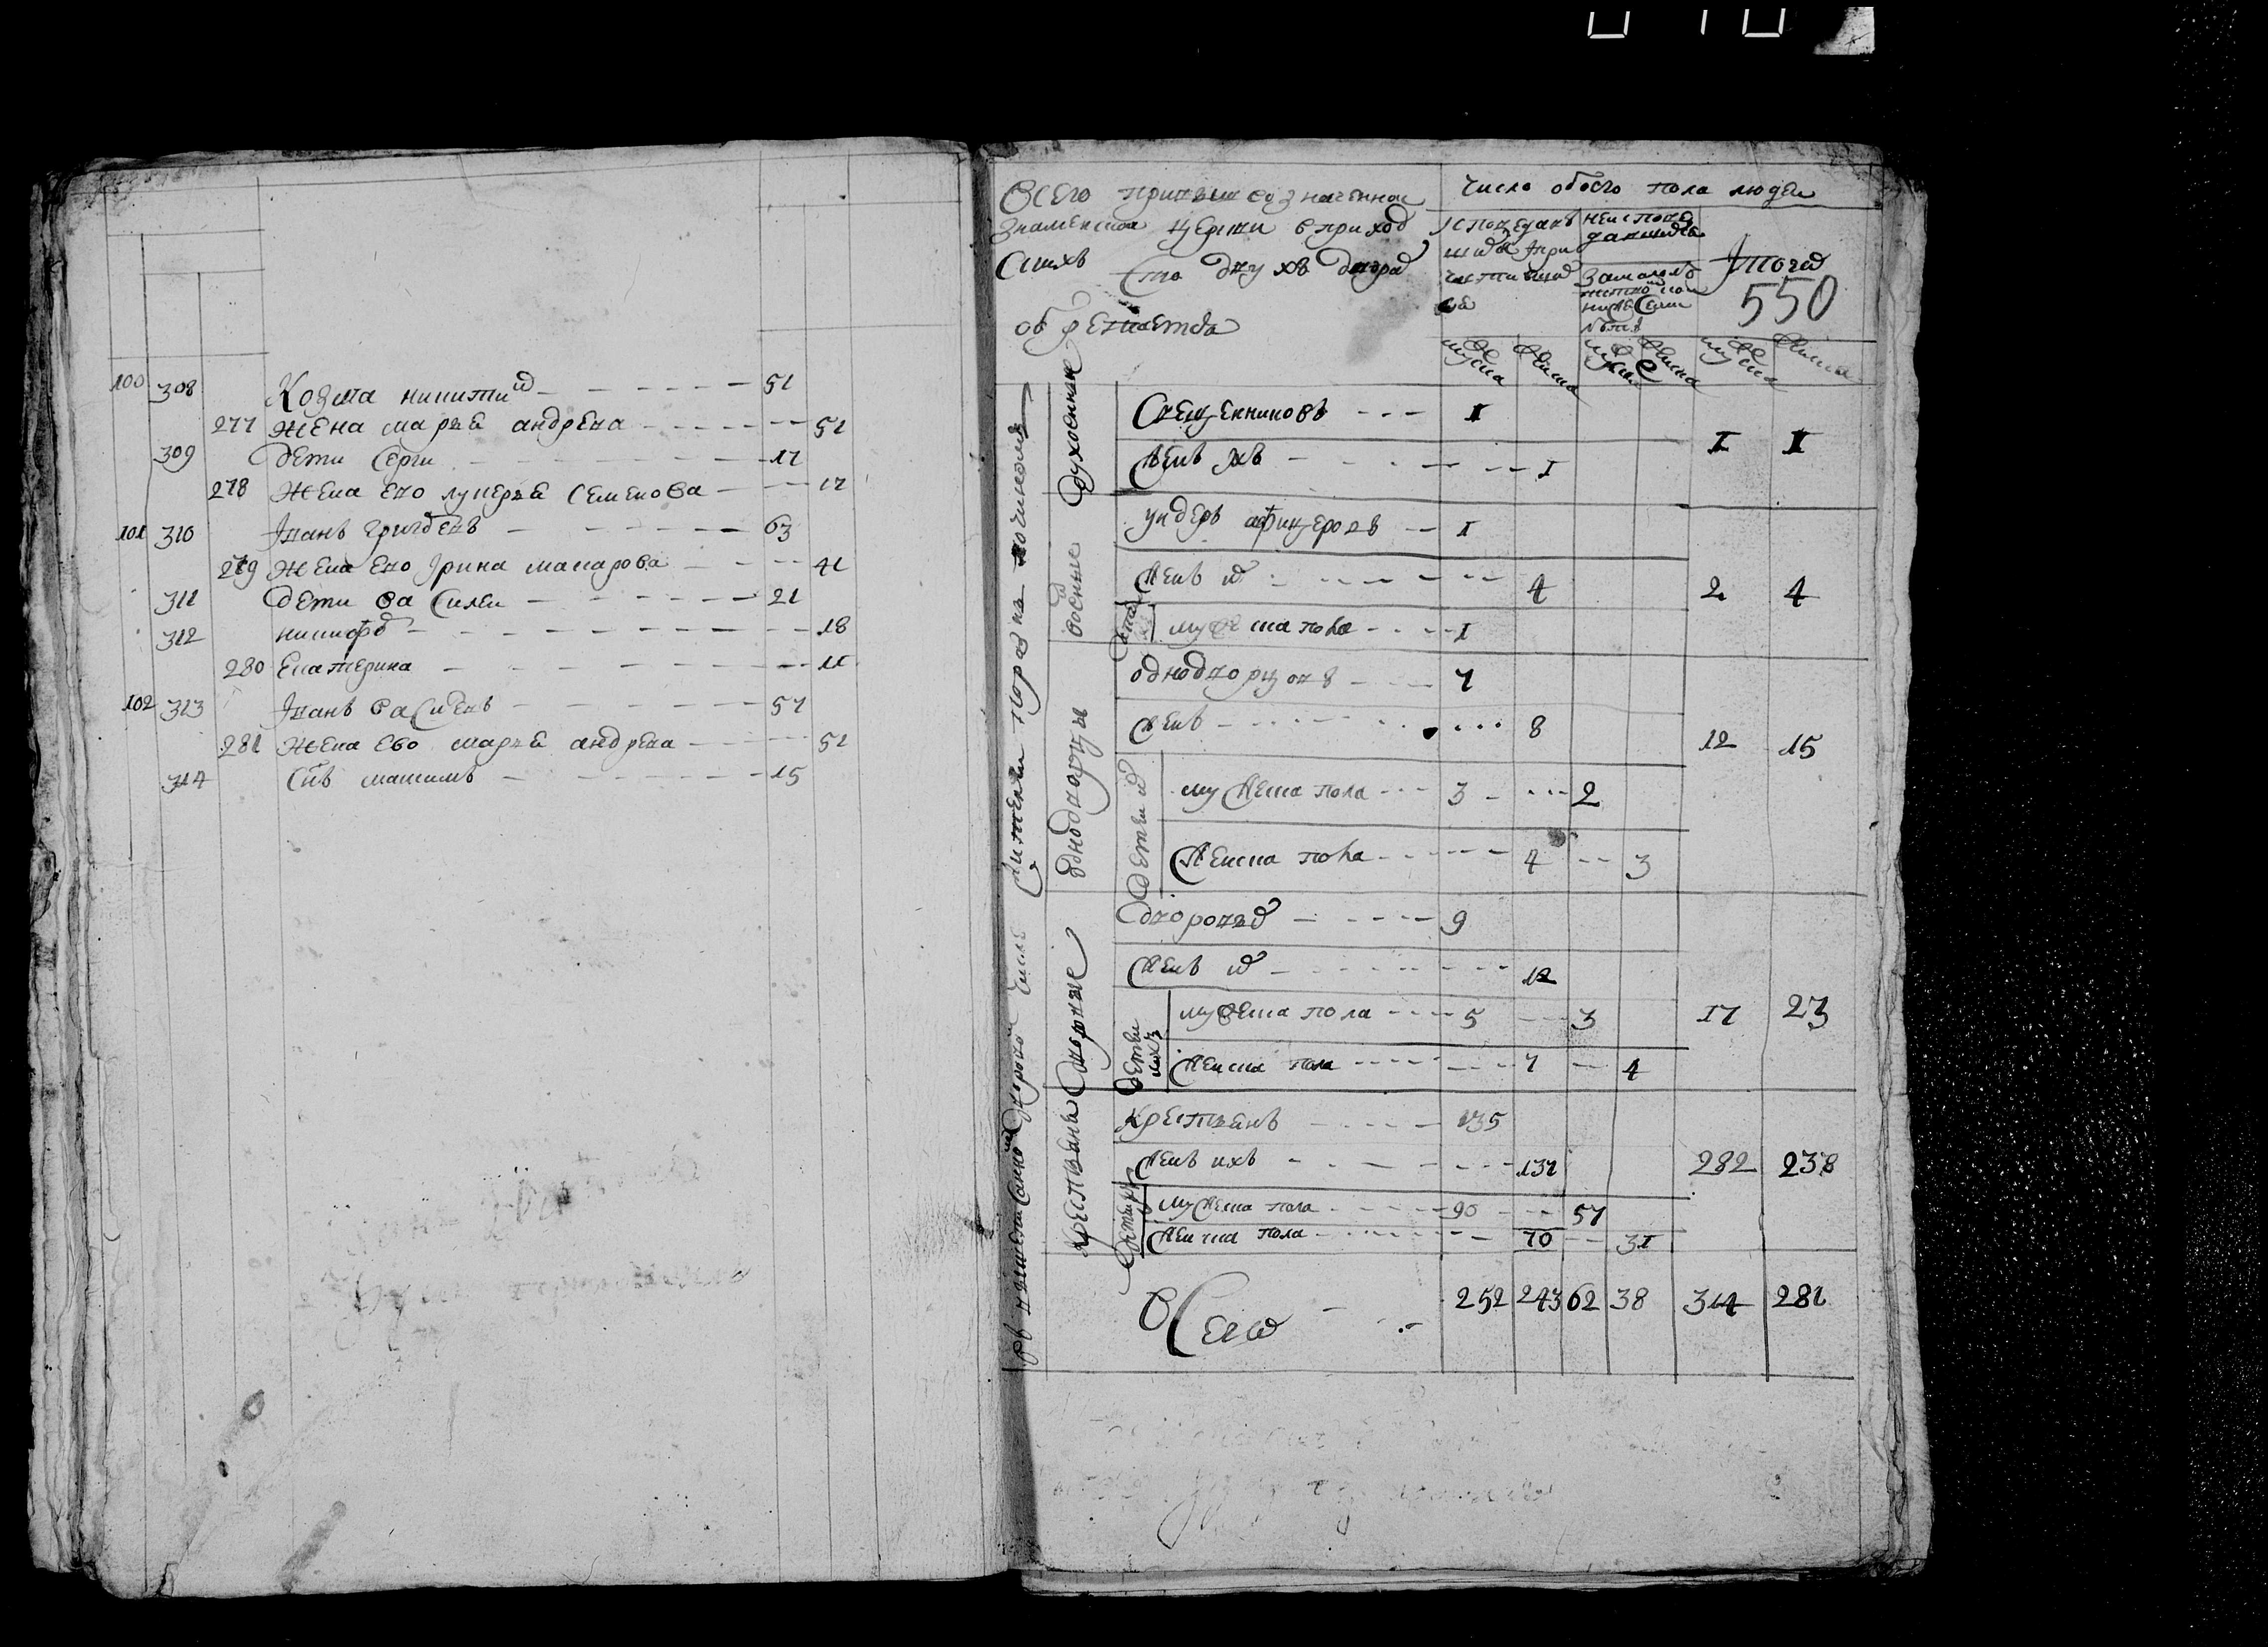 100 308 Козма никитин 51
277 жена марья андрева 51
309 дети Серги 17
278 жена ево лукерья Семенова 17
101 310 Іванъ григоревъ 63
279 жена ево Ірина макарова 41
311 дети василеи 21
312 никифоръ 18
280 Екатерина 11
102 313 Іванъ васильевъ 57
281 жена ево марья андрева 51
314 Снъ максимъ 15
Всего при вышеозначеннои
знаменскои церкви в приход
скихъ Сто двухъ дворах
обретается
число обоего пола людеи
исповедавъ
шихся і при
частивших
ся
неисповедавшихся
Итого
550
мужска женска мужска женска мужска женска
духовныя
Священниковъ 1
женъ ихъ 1
1 1
военные
ундеръ афицеровъ 1
женъ их 4
2 4
мужеска пола 1
однодворцы
однодворцовъ 7
женъ 8
12 15
детеи их
мужеска пола 3 2
женска пола 4 3
дворовые
дворовых 9
женъ их 12
детеи ихъ
мужеска пола 5 3
17 23
женска пола 7 4
крестьяня
крестьянъ 135
женъ ихъ 137
282 238
мужеска пола 90 57
женска пола 70 31
Всего 252 243 62 38 314 281